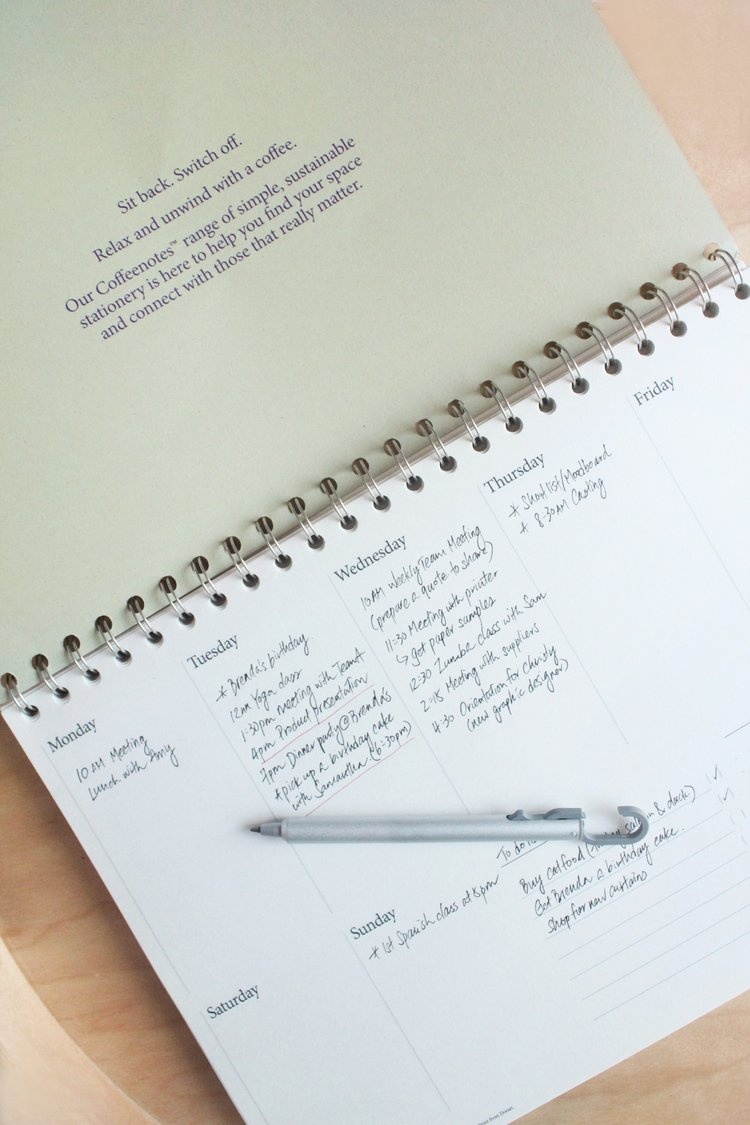 Sit back. Switch off.
Relax and unwind with a coffee.
Our Coffeenotes™ range of simple, sustainable
stationery is here to help you find your space
and connect with those that really matter.
Monday
10 AM Meeting
Lunch with Amy
Tuesday
* Brenda's birthday
12nn Yoga class
1:30pm meeting with Team A
4pm Product Presentation
7pm Dinner party @ Brenda's
* pick up a birthday cake
with Samantha (6:30pm)
Wednesday
10AM weekly Team Meeting
(prepare a quote to share)
11:30 Meeting with printer
↳ get paper samples
12:30 Zumba class with Sam
2:15 Meeting with suppliers
4:30 Orientation for Christy
(new graphic designer)
Thursday
* Shotlist/Moodboard
* 8:30AM Casting
Friday
Saturday
Sunday
* 1st Spanish class at 8pm
To do
Buy catfood & duck)
Get Brenda a birthday cake.
shop for new curtains